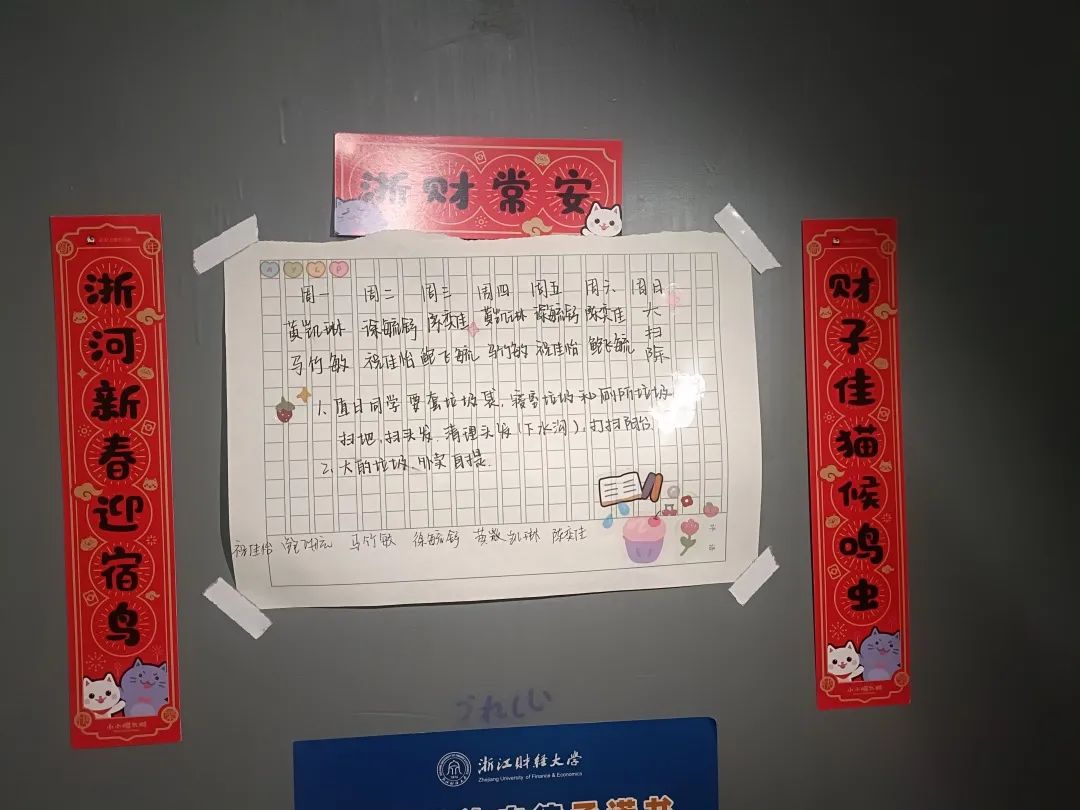 浙财常安
浙河新春迎宿鸟
财子佳猫候鸣虫
A Y L P
周一 周二 周三 周四 周五 周六 周日
黄凯琳 徐毓舒 陈奕佳 黄凯琳 徐毓舒 陈奕佳 大
马竹敏 祝佳怡 鲍飞毓 马竹敏 祝佳怡 鲍飞毓 扫
除
1. 值日同学要套垃圾袋,寝室垃圾和厕所垃圾
扫地,扫头发,清理头发(下水沟),打扫阳台
2. 大的垃圾、外卖自提.
祝佳怡 马竹敏 徐毓舒 黄凯琳 陈奕佳
うれしい
浙江财经大学
Zhejiang University of Finance & Economics